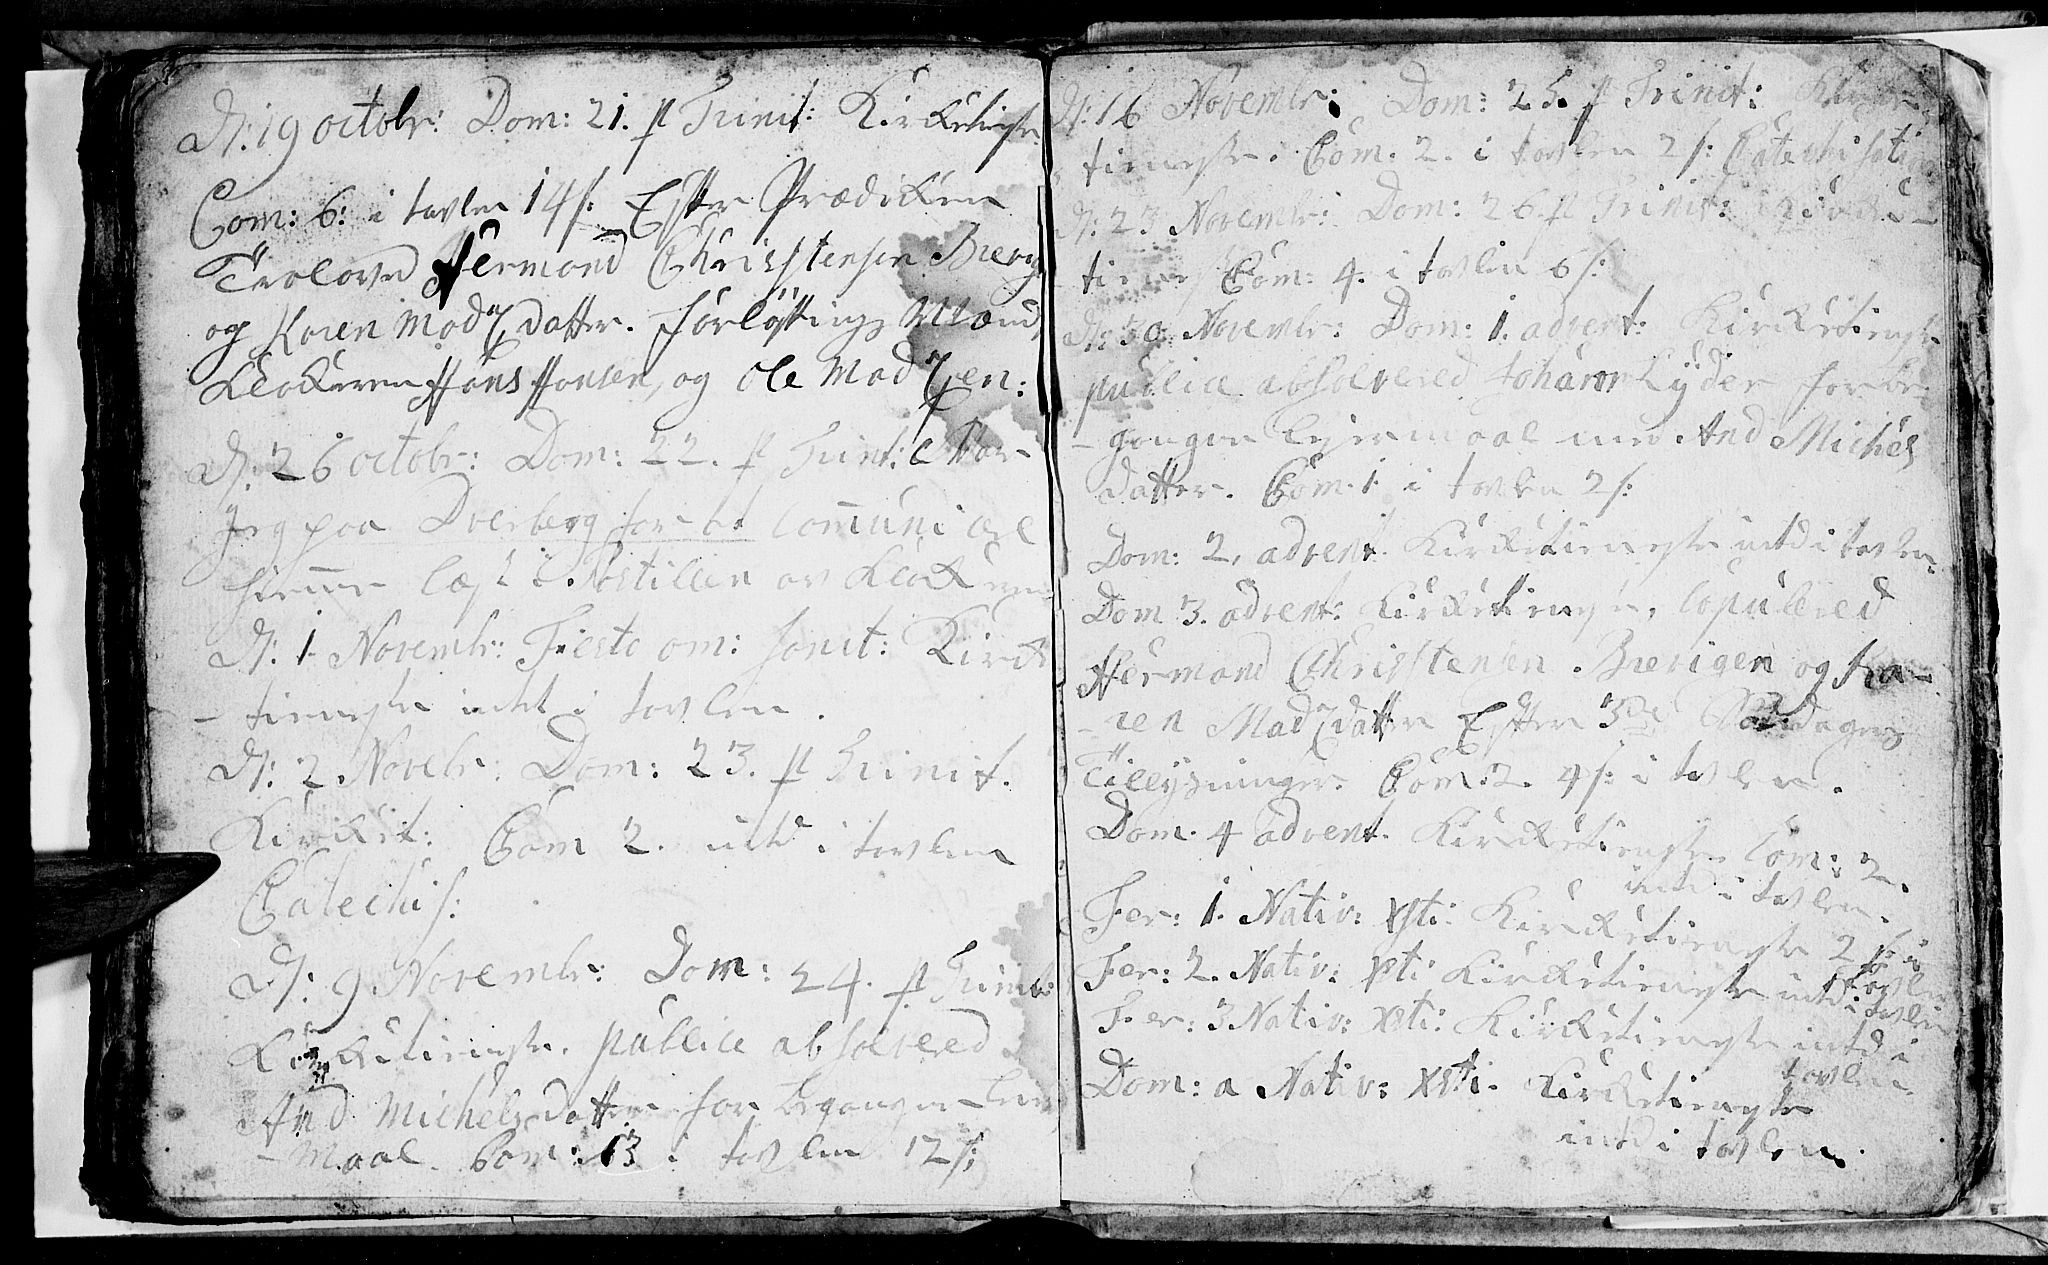 D: 19 octobr: Dom: 21. p Trinit: Kirketieneste
Com: 6: i tavlen 14 s: Efter Prædiken
Trolovd Hermand Christensen Brevig
og Karen Madzdatter. Forløftings Mænd
Klokeren Hans Hansen, og Ole Madzen:
D: 26 octobr: Dom: 22. p Trinit: Var
jeg paa Dverberg for at Communicere
hiemme læst i Postillen av Klokeren
D: 1. Novembr: Festo om: Sanct: Kirke
-tieneste intet i tavlen.
D: 2 Novebr: Dom: 23. p Trinit.
Kirket: Com 2. intd i tavlen
Catechis:
D: 9 Novembr: Dom: 24. p Trinit:
Kirketieneste. publice absolvered
And Michelsdatter for begangen Leier
-maal. Com: 13 i tavlen 12 s:
D: 16 Novembr: Dom: 25. p Trinit: Kirke
tieneste. Com. 2. i tavlen 2 s: Catechisation
D: 23 Novembr: Dom: 26. p Trinit: Kirke-
tienest Com: 4. i tavlen 6 s:
D: 30 Novembr: Dom: 1. advent: Kirketieneste
publice absolvered Johan Lyder for be-
-gangen Leiermaal med And Michels
datter. Com. 1. i tavlen 2 s:
Dom: 2. advent. Kirketieneste intd i tavlen.
Dom 3. advent: Kirketieneste, Copulered
Hermand Christensen Brevigen og Ka-
-ren Madzdatter Efter 3de Søndagers
Tillysninger. Com: 2. 4 s: i tavlen.
Dom. 4 advent. Kirketieneste Com: 2.
intd i tavlen.
Fer: 1. Nativ: Xsti: Kirketieneste 2 s: i
tavlen
Fer: 2. Nativ: Xsti Kirketieneste intd i tavlen
Fer: 3 Nativ: Xsti: Kirketieneste intd i
tavlen.
Dom: a Nativ: Xsti. Kirketieneste
intd i tavlen.